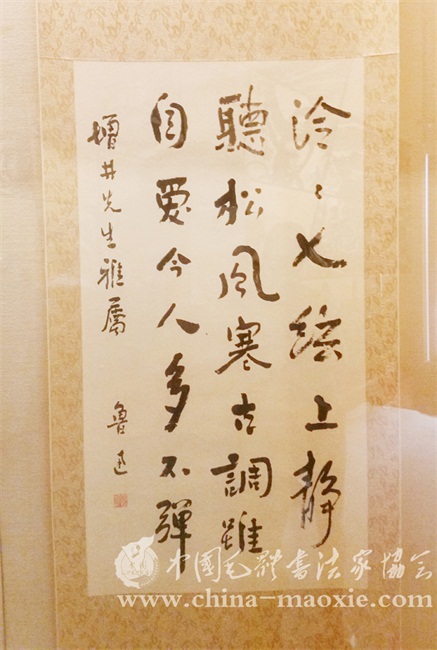 泠〻七絃上静
聽松風寒古調雖
自愛今人多不彈
增井先生雅屬
魯迅
中國毛體書法家協會
www.china-maoxie.com